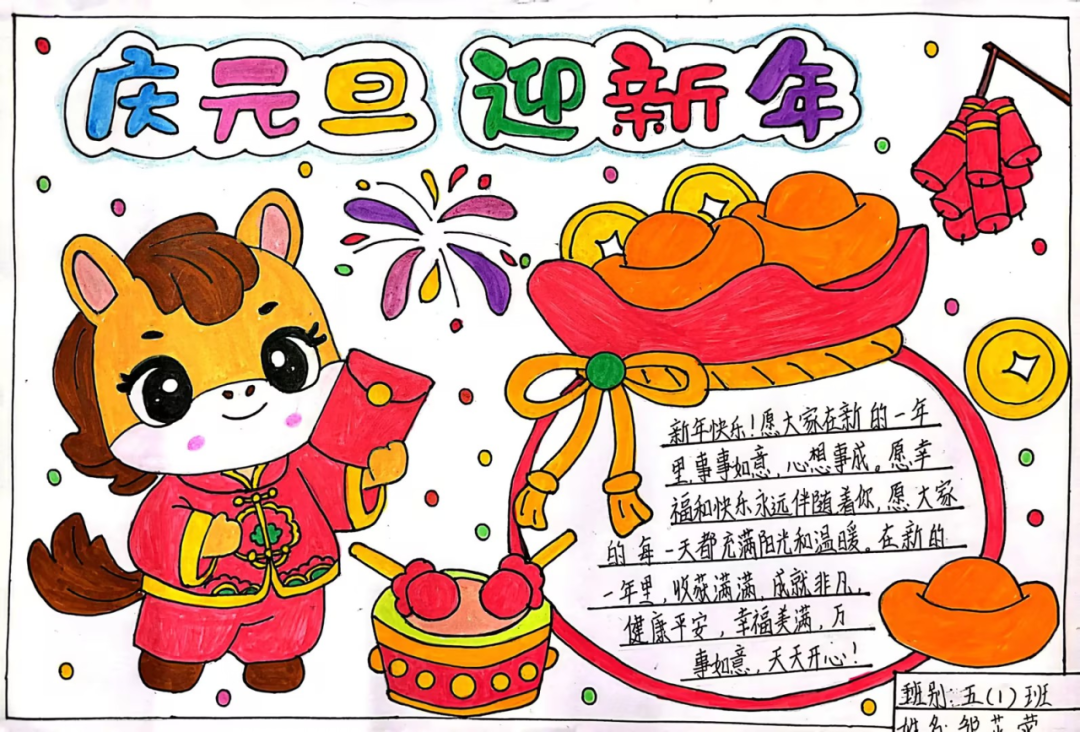 庆元旦 迎新年
新年快乐！愿大家在新的一年
里,事事如意,心想事成。愿幸
福和快乐永远伴随着你,愿大家
的每一天都充满阳光和温暖。在新的
一年里,收获满满,成就非凡,
健康平安,幸福美满,万
事如意,天天开心！
班别:五(1)班
姓名: